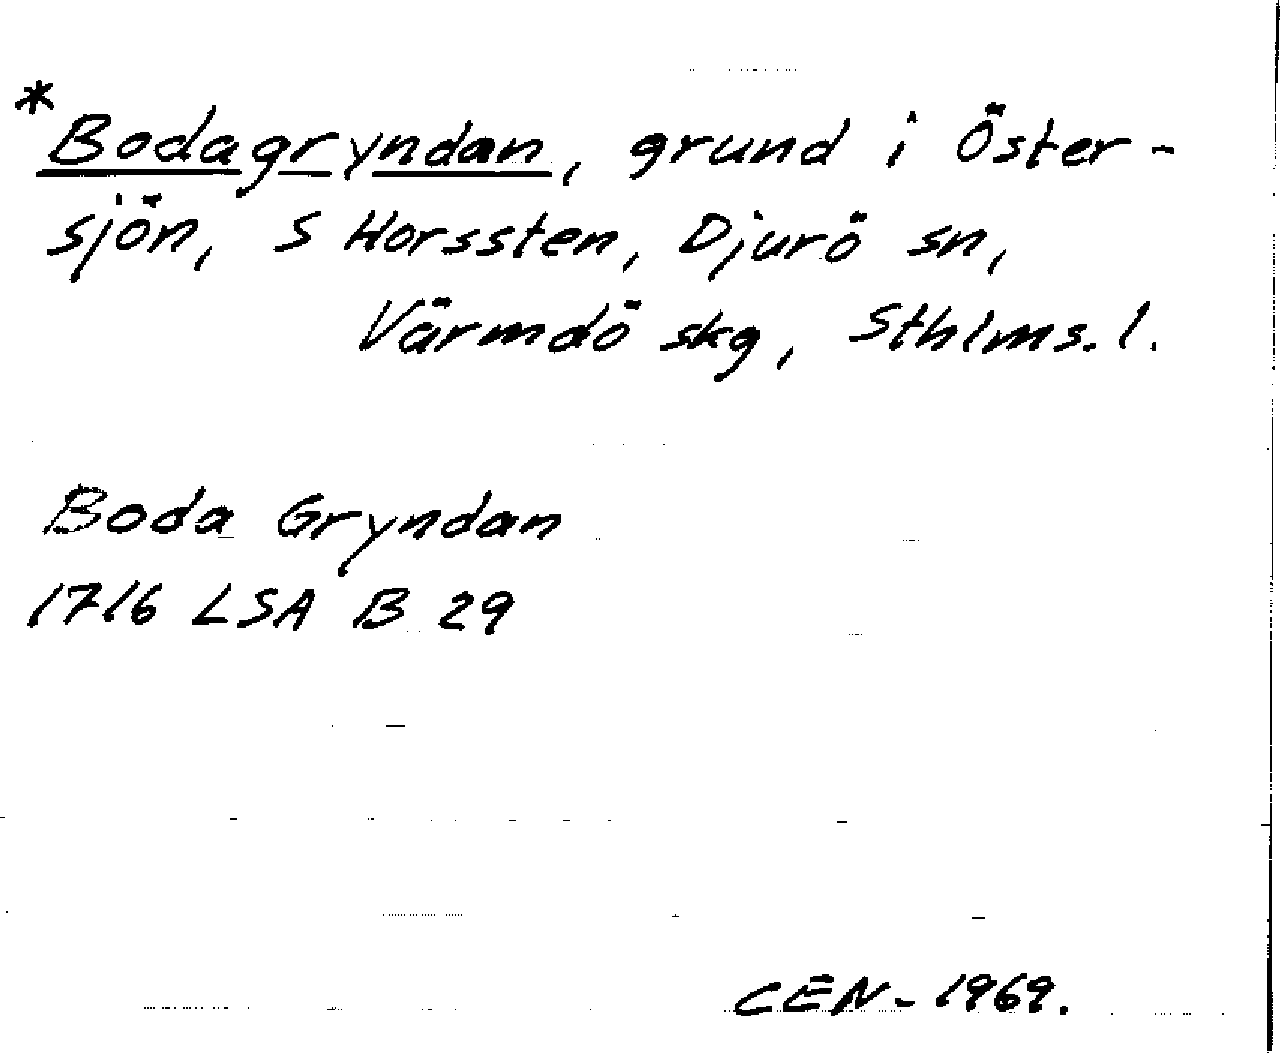 *Bodagryndan, grund i Öster-
sjön, S Horssten, Djurö sn,
Värmdö skg, Sthlms. l.
Boda Gryndan
1716 LSA B 29
CEN - 1969.